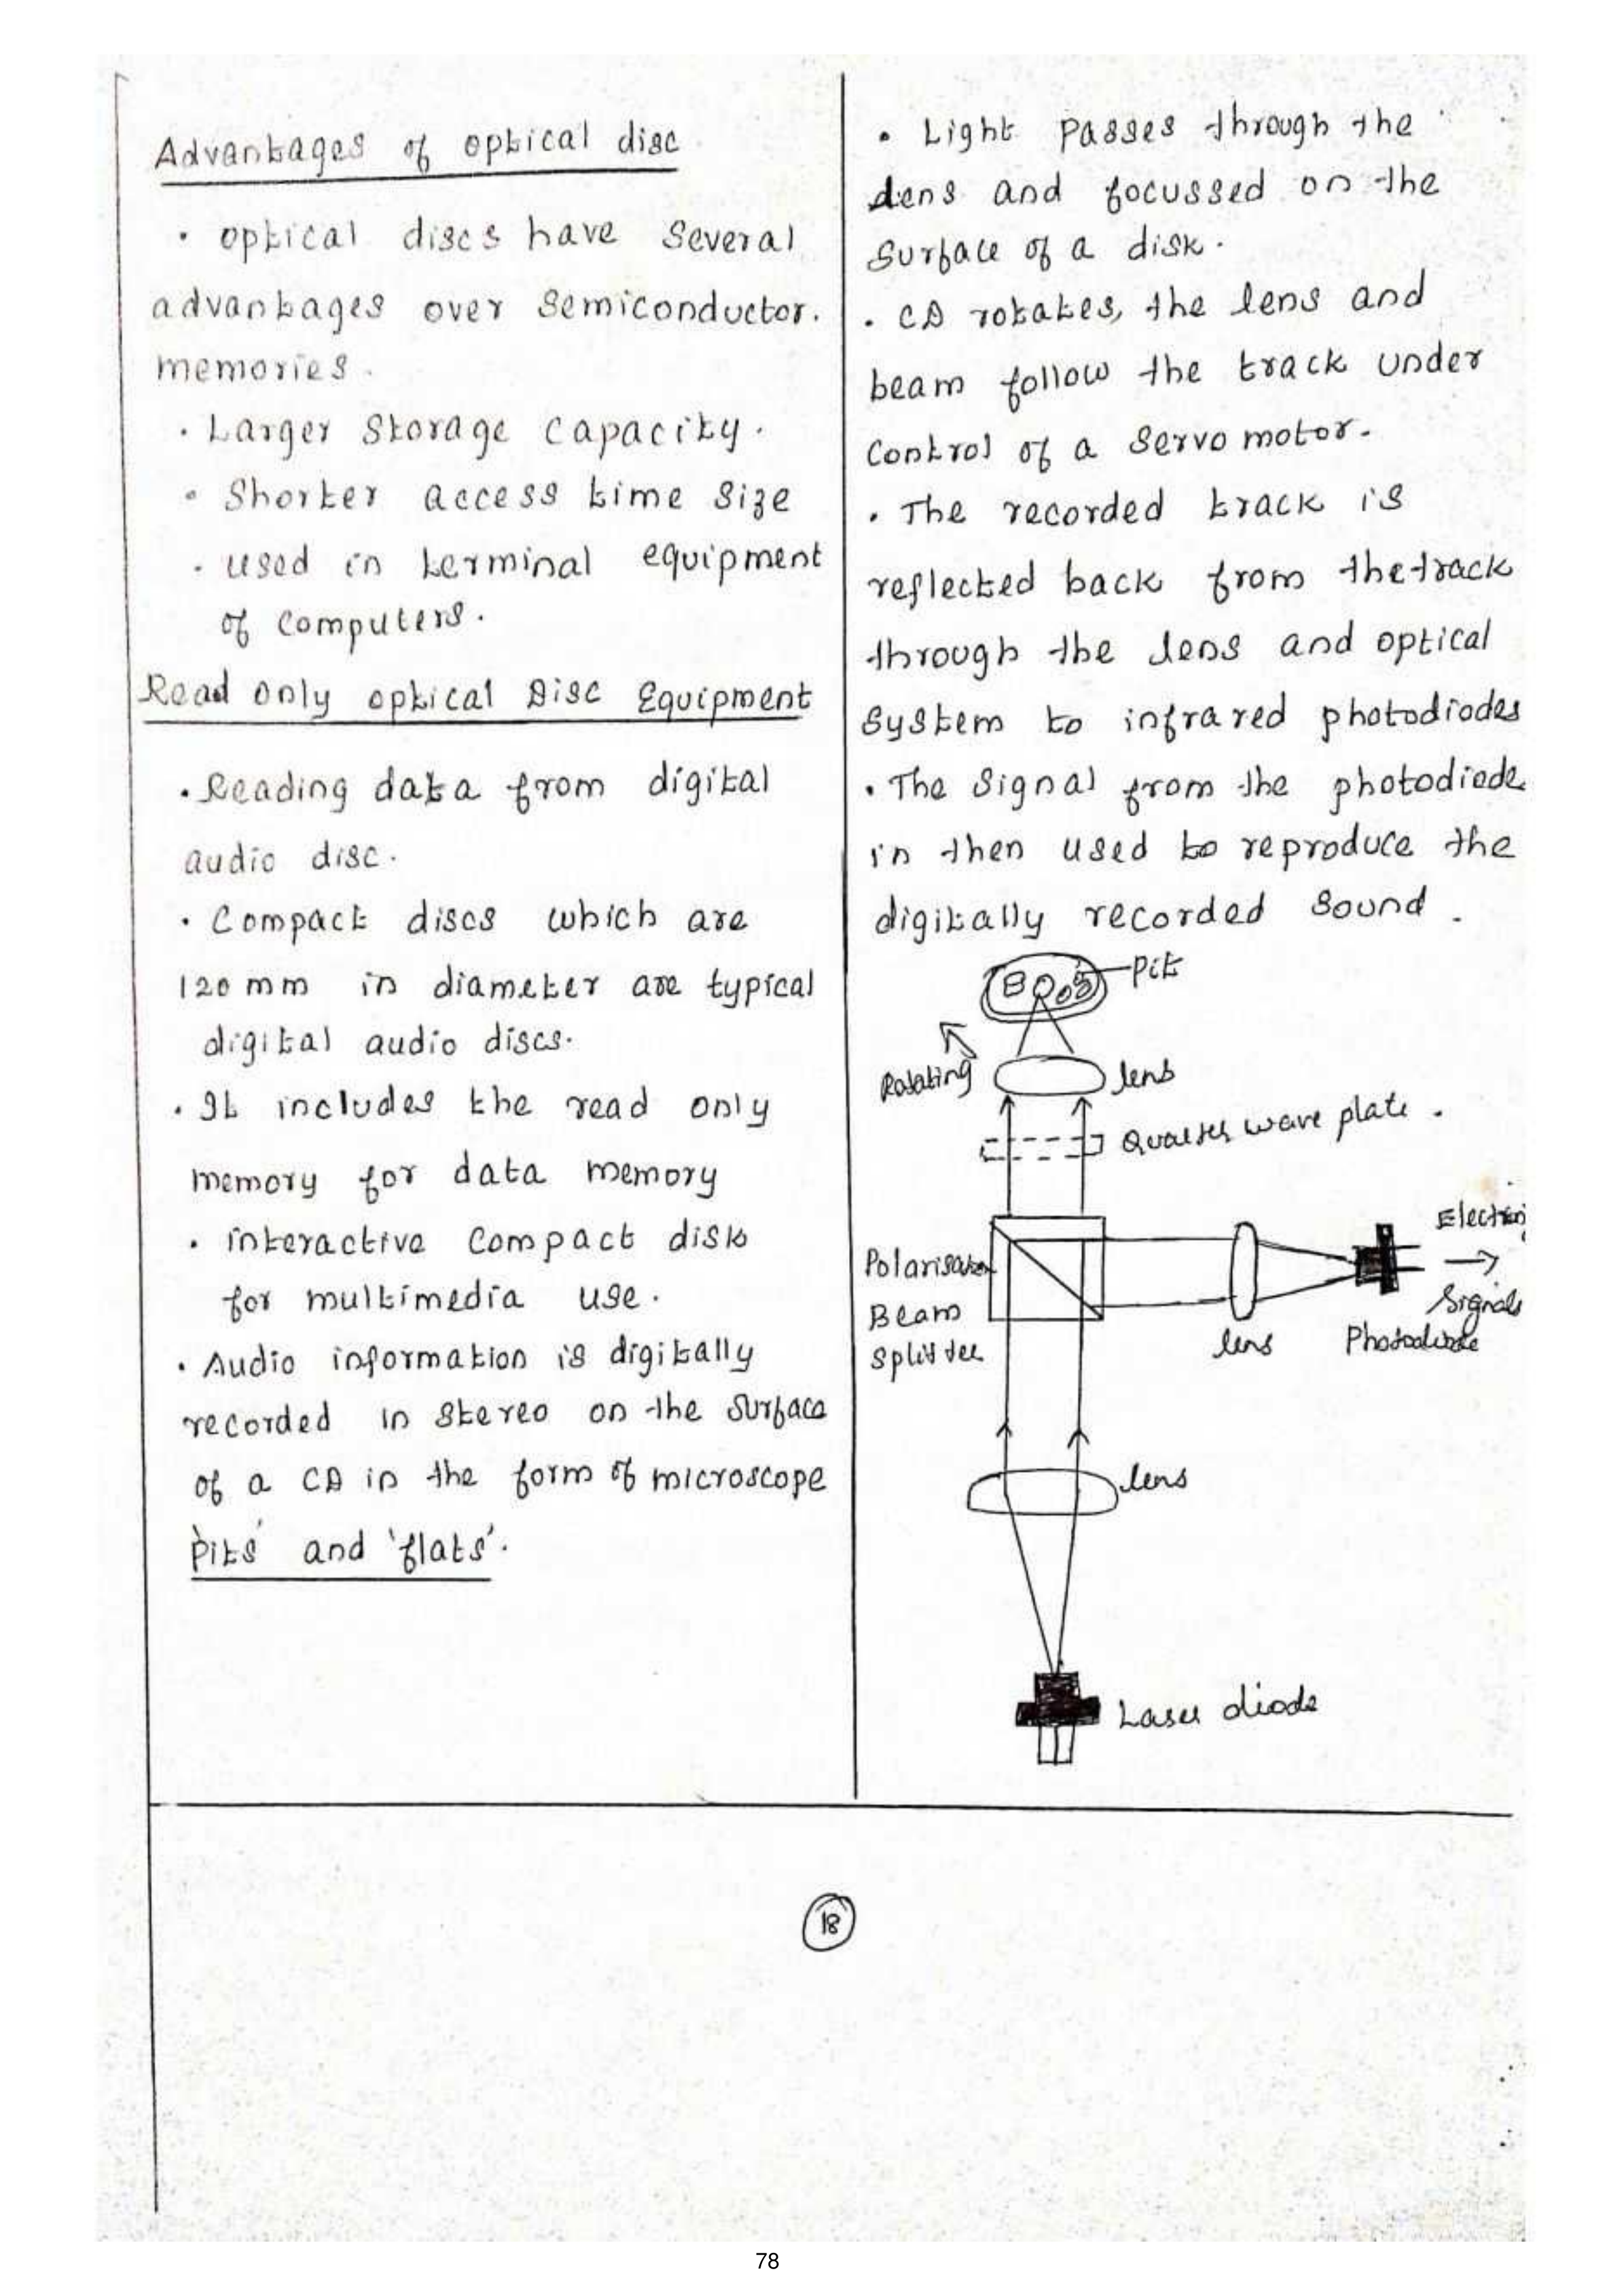 Advantages of optical disc
• optical discs have several
advantages over semiconductor.
memories.
• Larger storage capacity.
• Shorter access time size
• used in terminal equipment
of computers.
Read only optical Disc Equipment
• Reading data from digital
audio disc.
• Compact discs which are
120 mm in diameter are typical
digital audio discs.
• It includes the read only
memory for data memory
• interactive compact disk
for multimedia use.
• Audio information is digitally
recorded in stereo on the surface
of a CD in the form of microscope
'pits' and 'flats'.
• Light passes through the
lens and focussed on the
surface of a disk.
• CD rotates, the lens and
beam follow the track under
control of a servo motor.
• The recorded track is
reflected back from the track
through the lens and optical
system to infrared photodiodes
• The signal from the photodiode
in then used to reproduce the
digitally recorded sound.
pit
Rotating
lens
Quarter wave plate.
Electronic
Signals
Polarisation
Beam
splitter
lens
Photodiode
lens
Laser diode
18
78